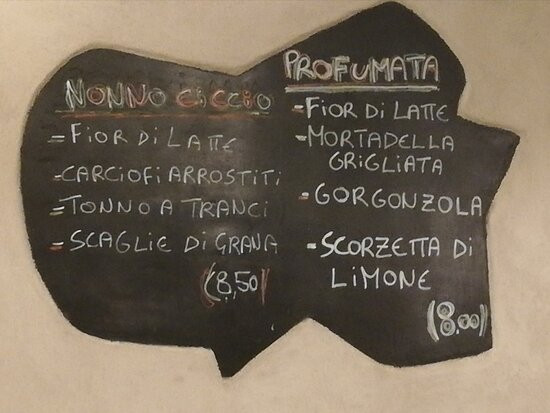 NONNO CICCIO
- FIOR DI LATTE
- CARCIOFI ARROSTITI
- TONNO A TRANCI
- SCAGLIE DI GRANA
(8,50)
PROFUMATA
- FIOR DI LATTE
- MORTADELLA
GRIGLIATA
- GORGONZOLA
- SCORZETTA DI
LIMONE
(8.00)